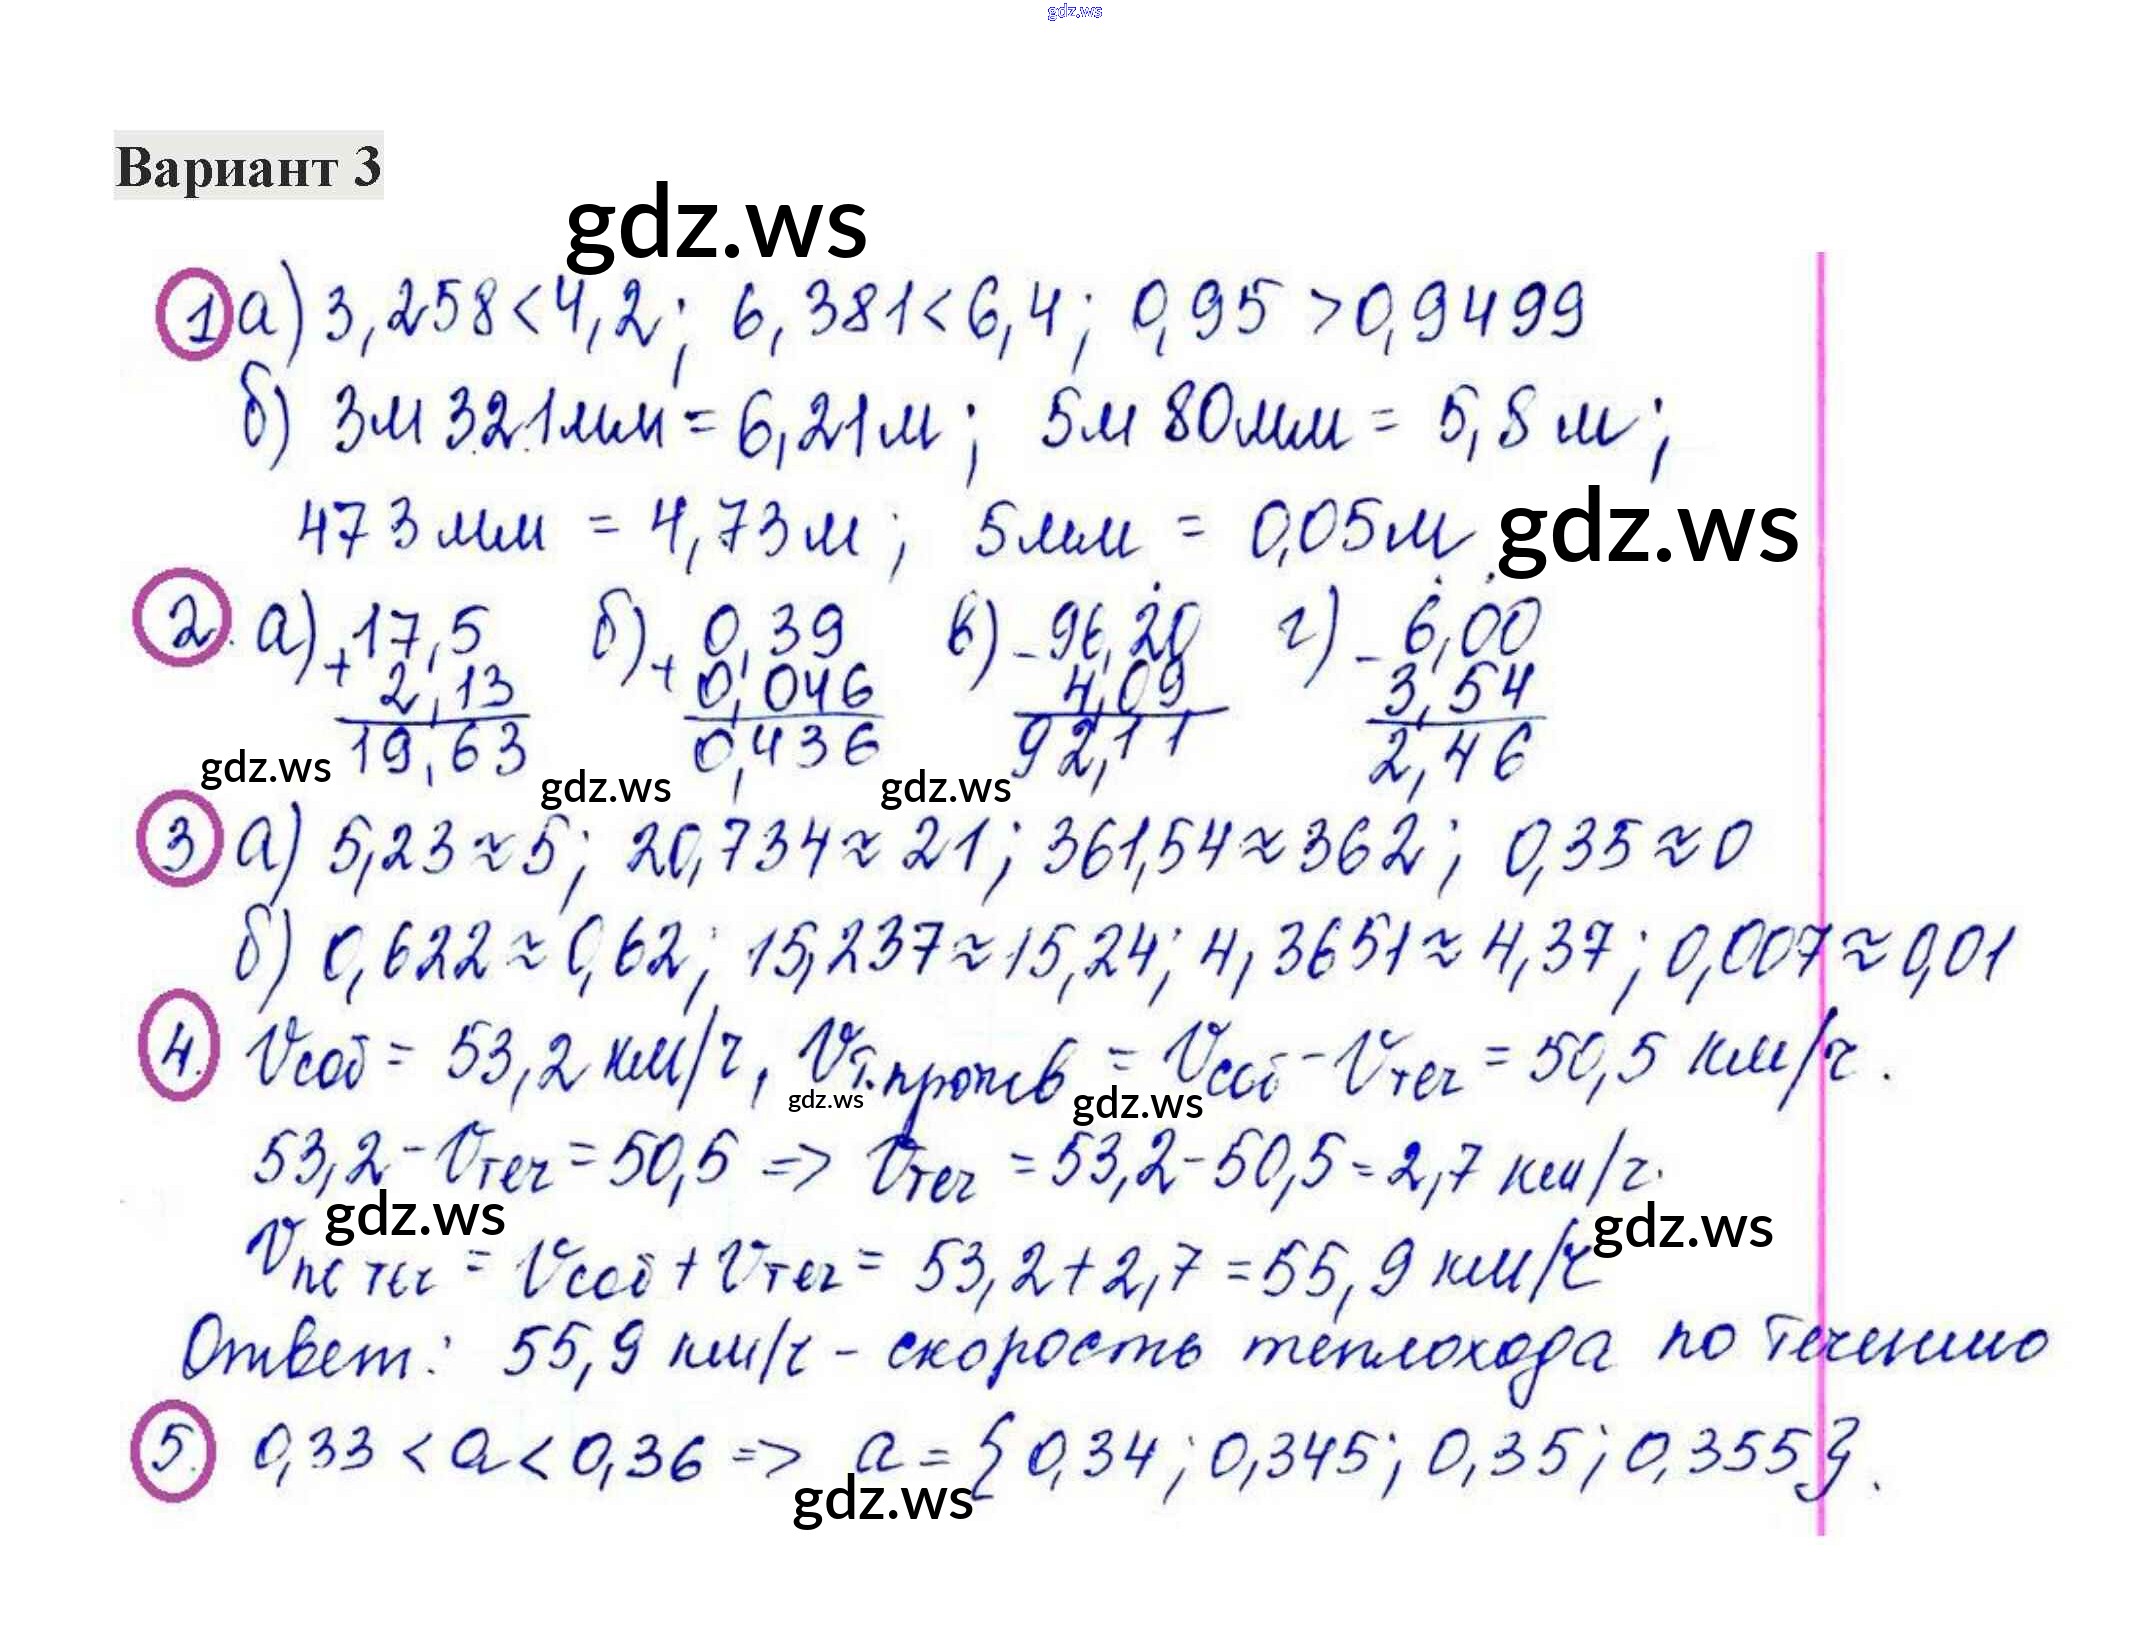 gdz.ws
Вариант 3
gdz.ws
1 а) 3,258<4,2; 6,381<6,4; 0,95 >0,9499
б) 3м 321мм = 6,21м; 5м 80мм = 5,8 м;
473 мм = 4,73м; 5мм = 0,05м
gdz.ws
2. а) + 17,5 б) + 0,39 в) - 96,20 г) - 6,00
2,13 0,046 4,09 3,54
19,63 0,436 92,11 2,46
gdz.ws gdz.ws gdz.ws
3 а) 5,23≈5; 20,734≈21; 361,54≈362; 0,35≈0
б) 0,622≈0,62; 15,237≈15,24; 4,3651≈4,37; 0,007≈0,01
4. Vсоб = 53,2 км/ч, Vт.против = Vсоб - Vтеч = 50,5 км/ч.
gdz.ws gdz.ws
53,2 - Vтеч = 50,5 => Vтеч = 53,2 - 50,5 = 2,7 км/ч.
gdz.ws gdz.ws
Vпо теч = Vсоб + Vтеч = 53,2 + 2,7 = 55,9 км/ч
Ответ: 55,9 км/ч - скорость теплохода по течению
5. 0,33 < а < 0,36 => а = {0,34; 0,345; 0,35; 0,355}.
gdz.ws